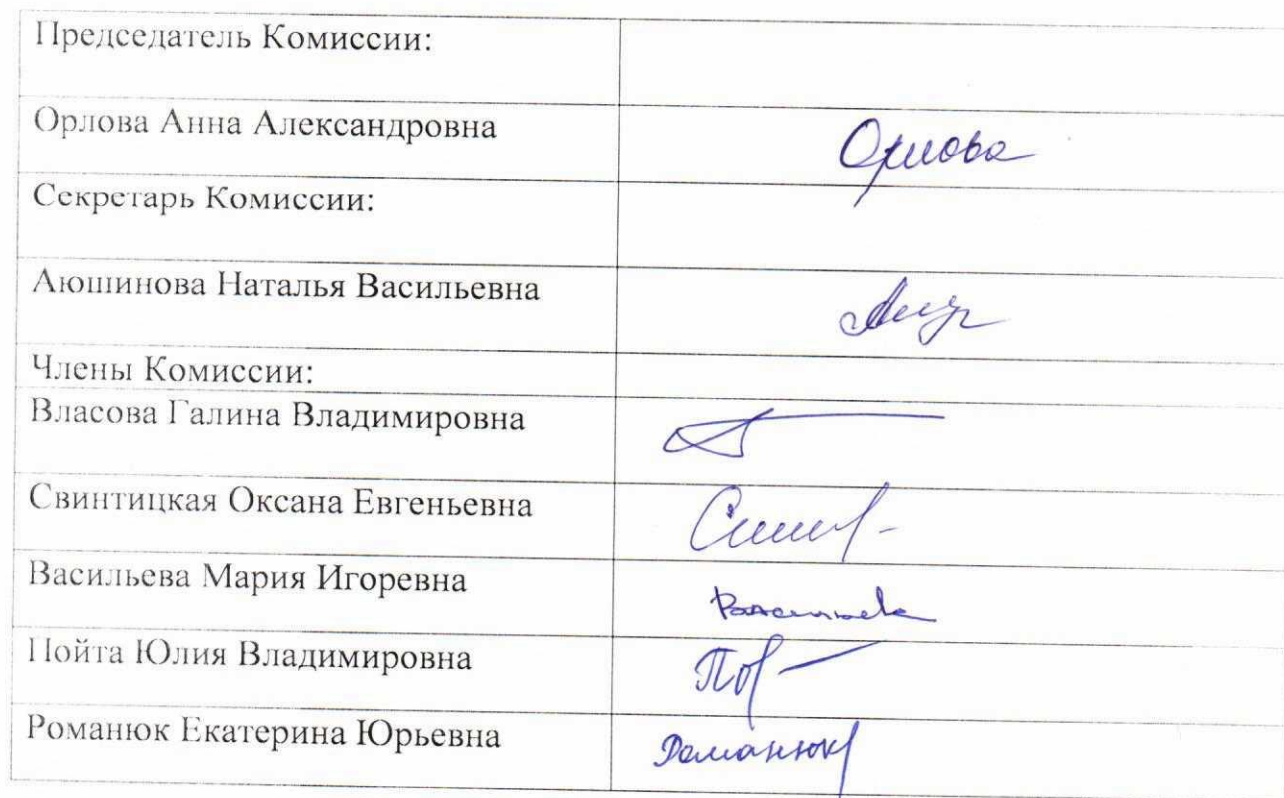 Председатель Комиссии:
Орлова Анна Александровна
Орлова
Секретарь Комиссии:
Аюшинова Наталья Васильевна
Члены Комиссии:
Власова Галина Владимировна
Свинтицкая Оксана Евгеньевна
Васильева Мария Игоревна
Васильева
Пойта Юлия Владимировна
Романюк Екатерина Юрьевна
Романюк